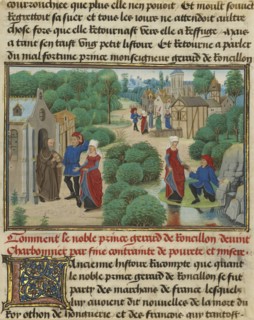 courrouchiee que plus elle nen pouoit Et moult souuent
Regrettoit sa suer et tous les iours ne attendoit aultre
chose fors que elle Retournast vers elle a Reffuge
a tant sen taist lystoire Et Retourne a parler
du mal fortune prince monseigneur gerard de Roncillon
Comment le noble prince gerard de Roncillon deuint
Charbonnier par fine contrainte de pourete et misere
L Anchienne histoire Racompte que quant
le noble prince gerard de Roncillon se fut
party des marchans de france lesquels
luy auoient dit nouuelles de la mort du
Roy othon de honguerie et des francois qui tantost